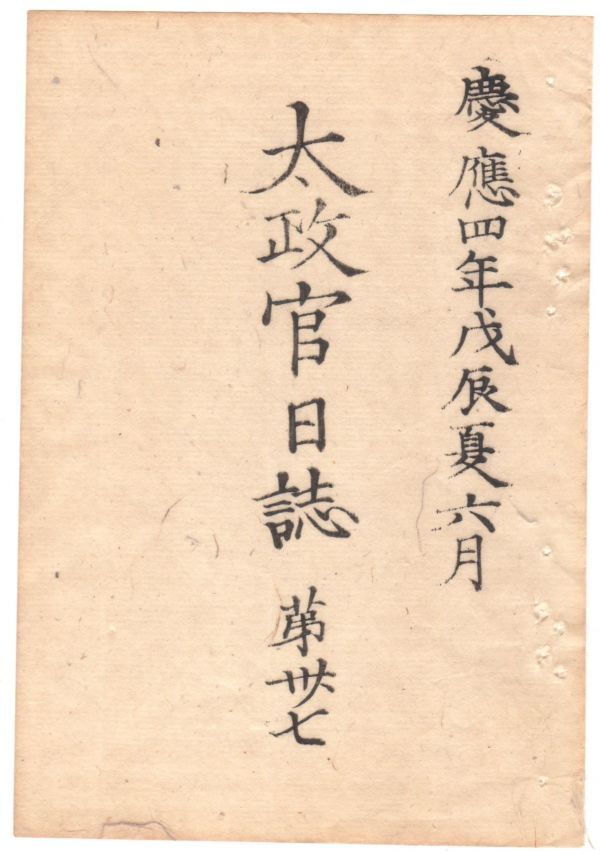 慶應四年戊辰夏六月
太政官日誌 苐卅七